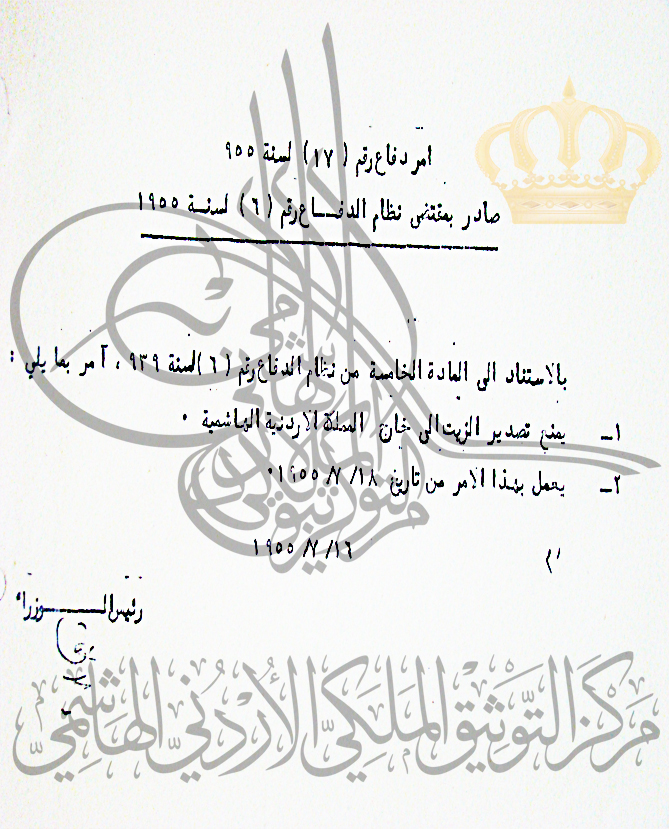 امر دفاع رقم (١٧) لسنة ٩٥٥
صادر بمقتضى نظام الدفــاع رقم (٦) لسنة ١٩٥٥
بالاستناد الى المادة الخامسة من نظام الدفاع رقم (٦) لسنة ٩٣٩ ، آمر بما يلي :
١ـ يمنع تصدير الزيت الى خارج المملكة الاردنية الهاشمية ٠
٢ـ يعمل بهذا الامر من تاريخ ١٨/ ٧/ ١٩٥٥ ٠
١٦/ ٧/ ١٩٥٥
رئيس الــــوزراء
مركز التوثيق الملكي الأردني الهاشمي